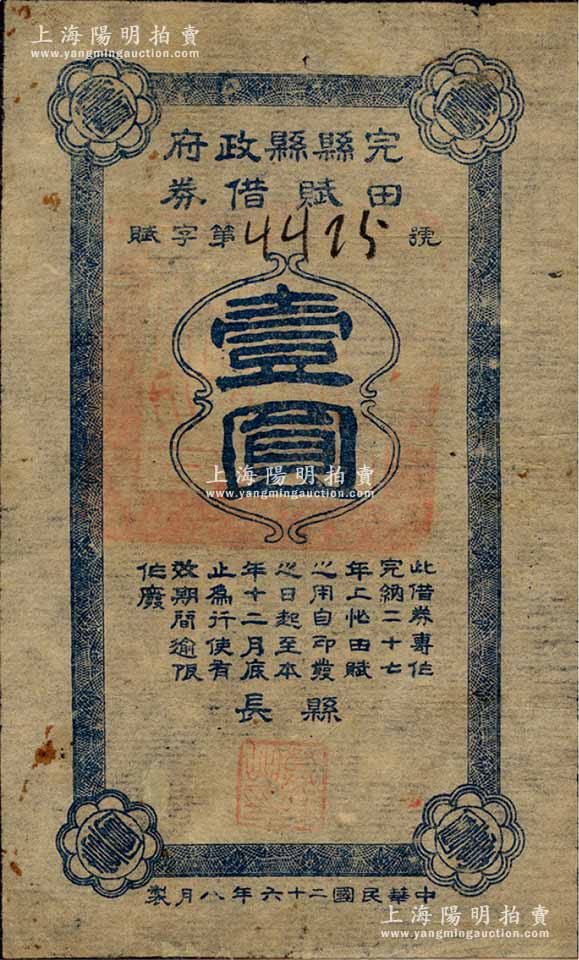 上海陽明拍賣
www.yangmingauction.com
完縣縣政府
田賦借券
賦字第4475號
壹圓
上海陽明拍賣
www.yangmingauction.com
此借券專作
完納二十七
年上忙田賦
之用自印發
之日起至本
年十二月底
止為行使有
效期間逾限
作廢
縣長
中華民國二十六年八月製
上海陽明拍賣
www.yangmingauction.com